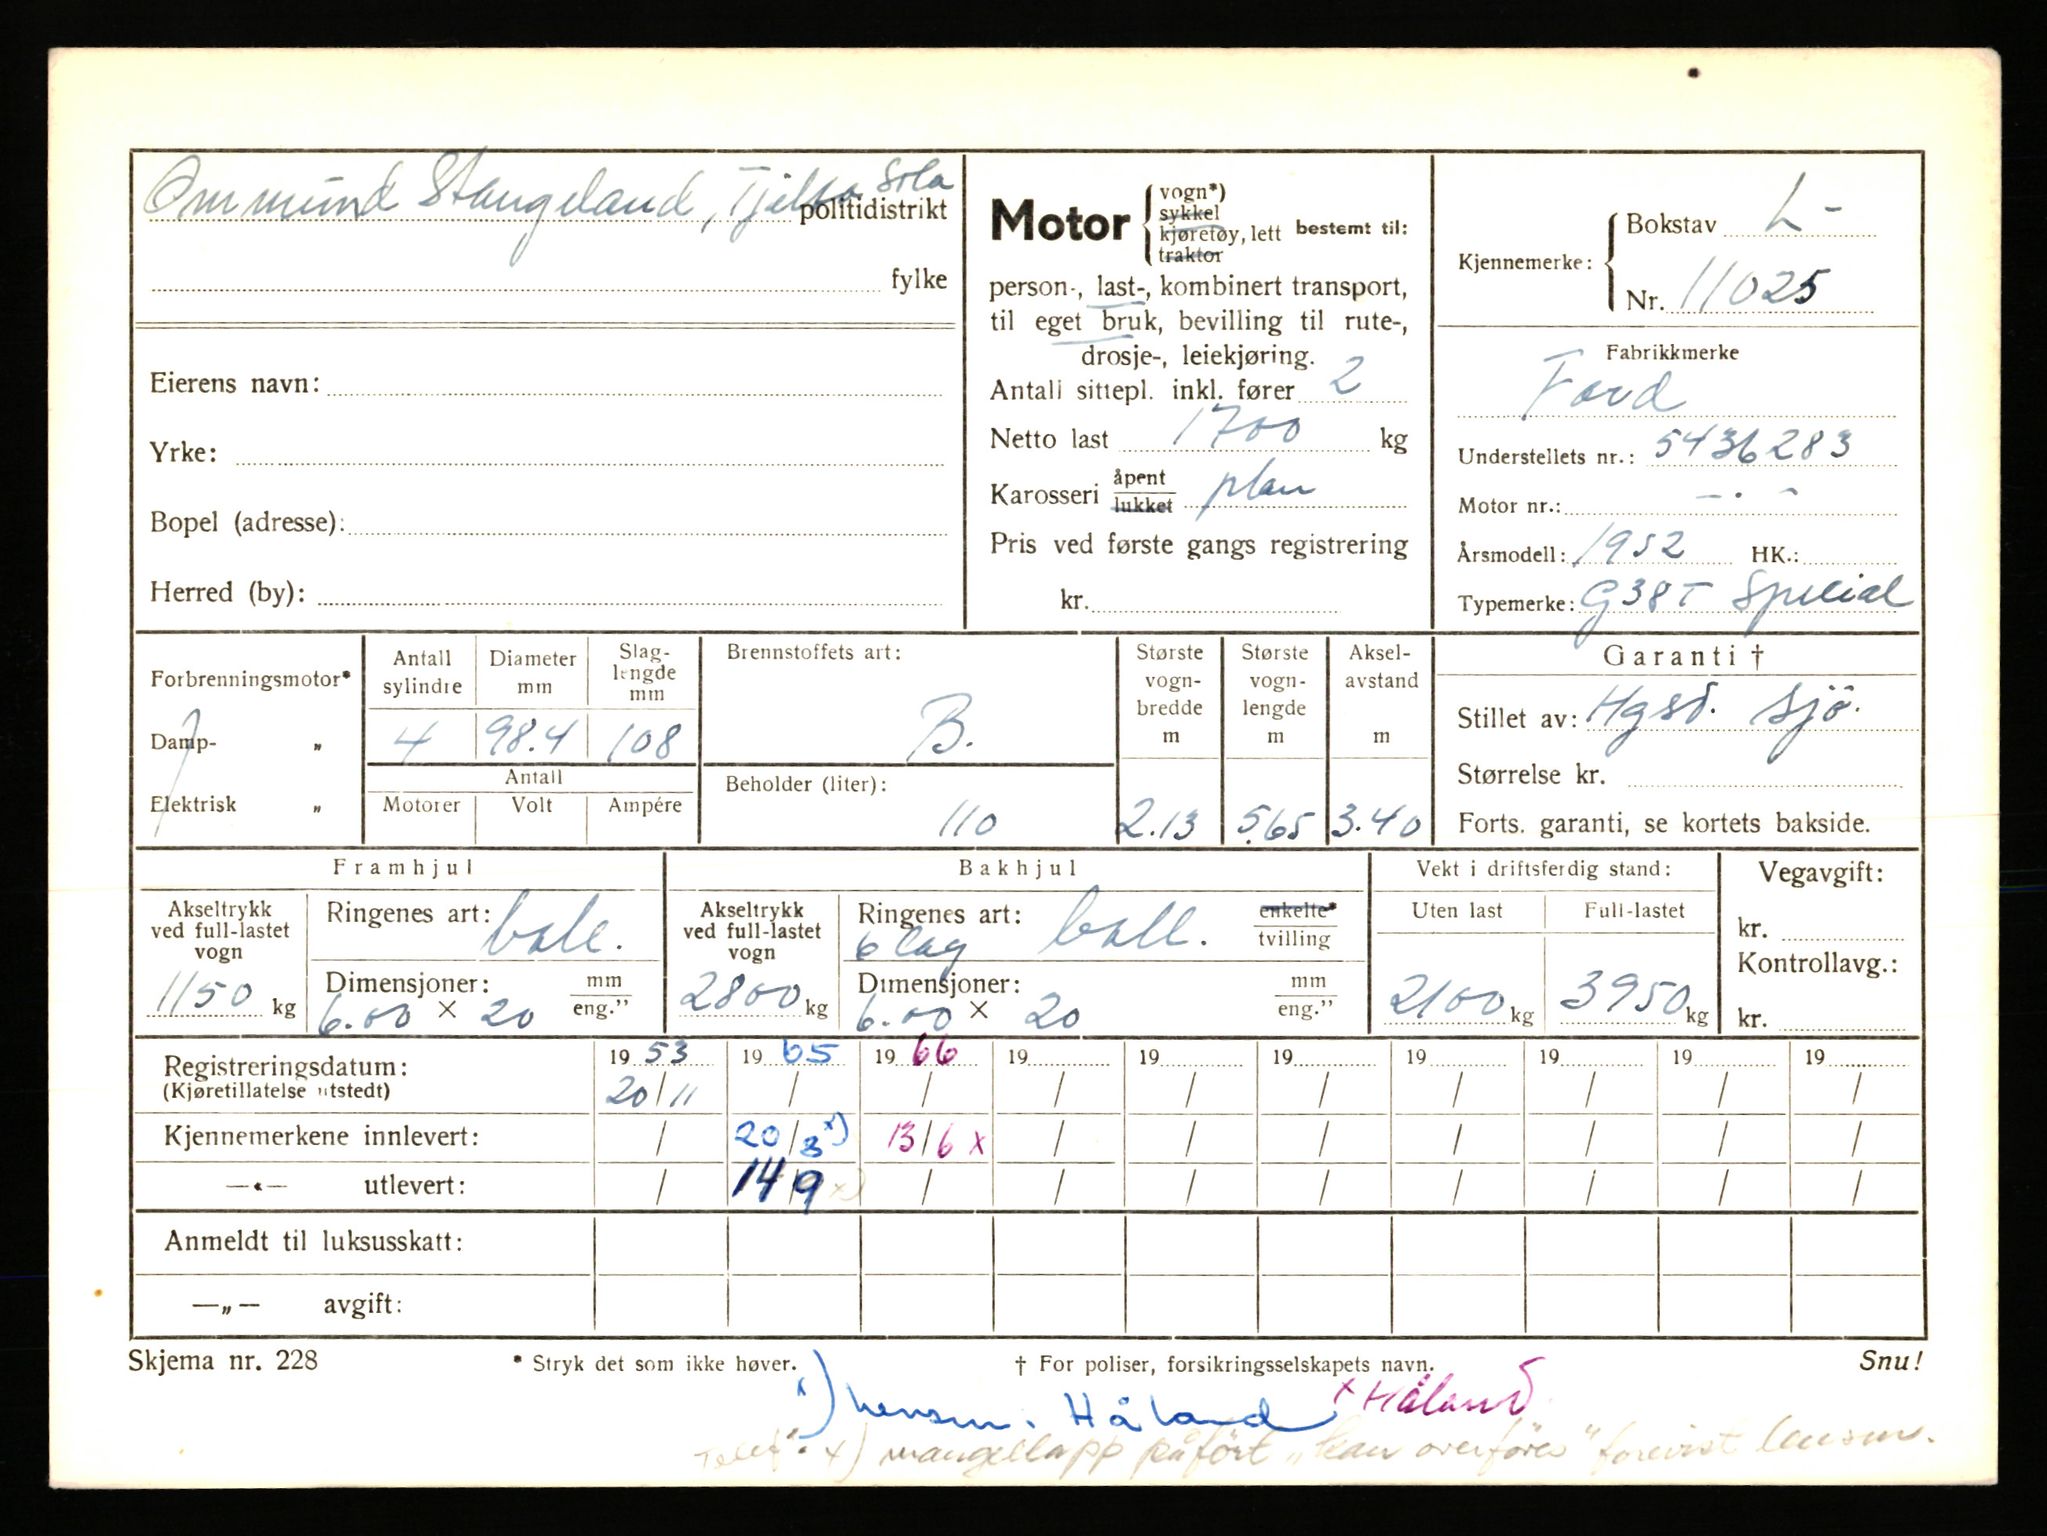 Ommund Stangeland, Tjelta Sola
politidistrikt
fylke
Eierens navn:
Yrke:
Bopel (adresse):
Herred (by):
Motor
vogn*)
sykkel
kjøretøy, lett
traktor
bestemt til:
person-, last-, kombinert transport,
til eget bruk, bevilling til rute-,
drosje-, leiekjøring.
Antall sittepl. inkl. fører 2
Netto last 1700 kg
Karosseri åpent plan
lukket
Pris ved første gangs registrering
kr.
Kjennemerke:
Bokstav L-
Nr. 11025
Fabrikkmerke
Ford
Understellets nr.: 5436283
Motor nr.: - . -
Årsmodell: 1952 HK.:
Typemerke: G38T Special
Forbrenningsmotor*
Damp- „
Elektrisk „
Antall sylindre
4
Diameter mm
98.4
Slag-lengde mm
108
Antall
Motorer Volt Ampére
Brennstoffets art:
B.
Beholder (liter):
110
Største vogn-bredde m
2.13
Største vogn-lengde m
5.65
Aksel-avstand m
3.40
Garanti †
Stillet av: Hgsd. Sjö.
Størrelse kr.
Forts. garanti, se kortets bakside.
Framhjul
Akseltrykk ved full-lastet vogn
1150 kg
Ringenes art: ball.
Dimensjoner: mm
6.00 × 20 eng."
Bakhjul
Akseltrykk ved full-lastet vogn
2800 kg
Ringenes art: ball. enkelte*
6 lag tvilling
Dimensjoner: mm
6.00 × 20 eng."
Vekt i driftsferdig stand:
Uten last Full-lastet
2100 kg 3950 kg
Vegavgift:
kr.
Kontrollavg.:
kr.
Registreringsdatum: 19 53 19 65 19 66 19 19 19 19 19 19 19
(Kjøretillatelse utstedt) 20/11 / / / / / / / / /
Kjennemerkene innlevert: / 20/8 x) 13/6 x / / / / / / /
—«— utlevert: / 14/9 x) / / / / / / / /
Anmeldt til luksusskatt:
—„— avgift:
Skjema nr. 228
* Stryk det som ikke høver.
† For poliser, forsikringsselskapets navn.
Snu!
x) lensm. Håland x Håland
Telef. x) mangellapp påført „kan overføres" forevist lensm.